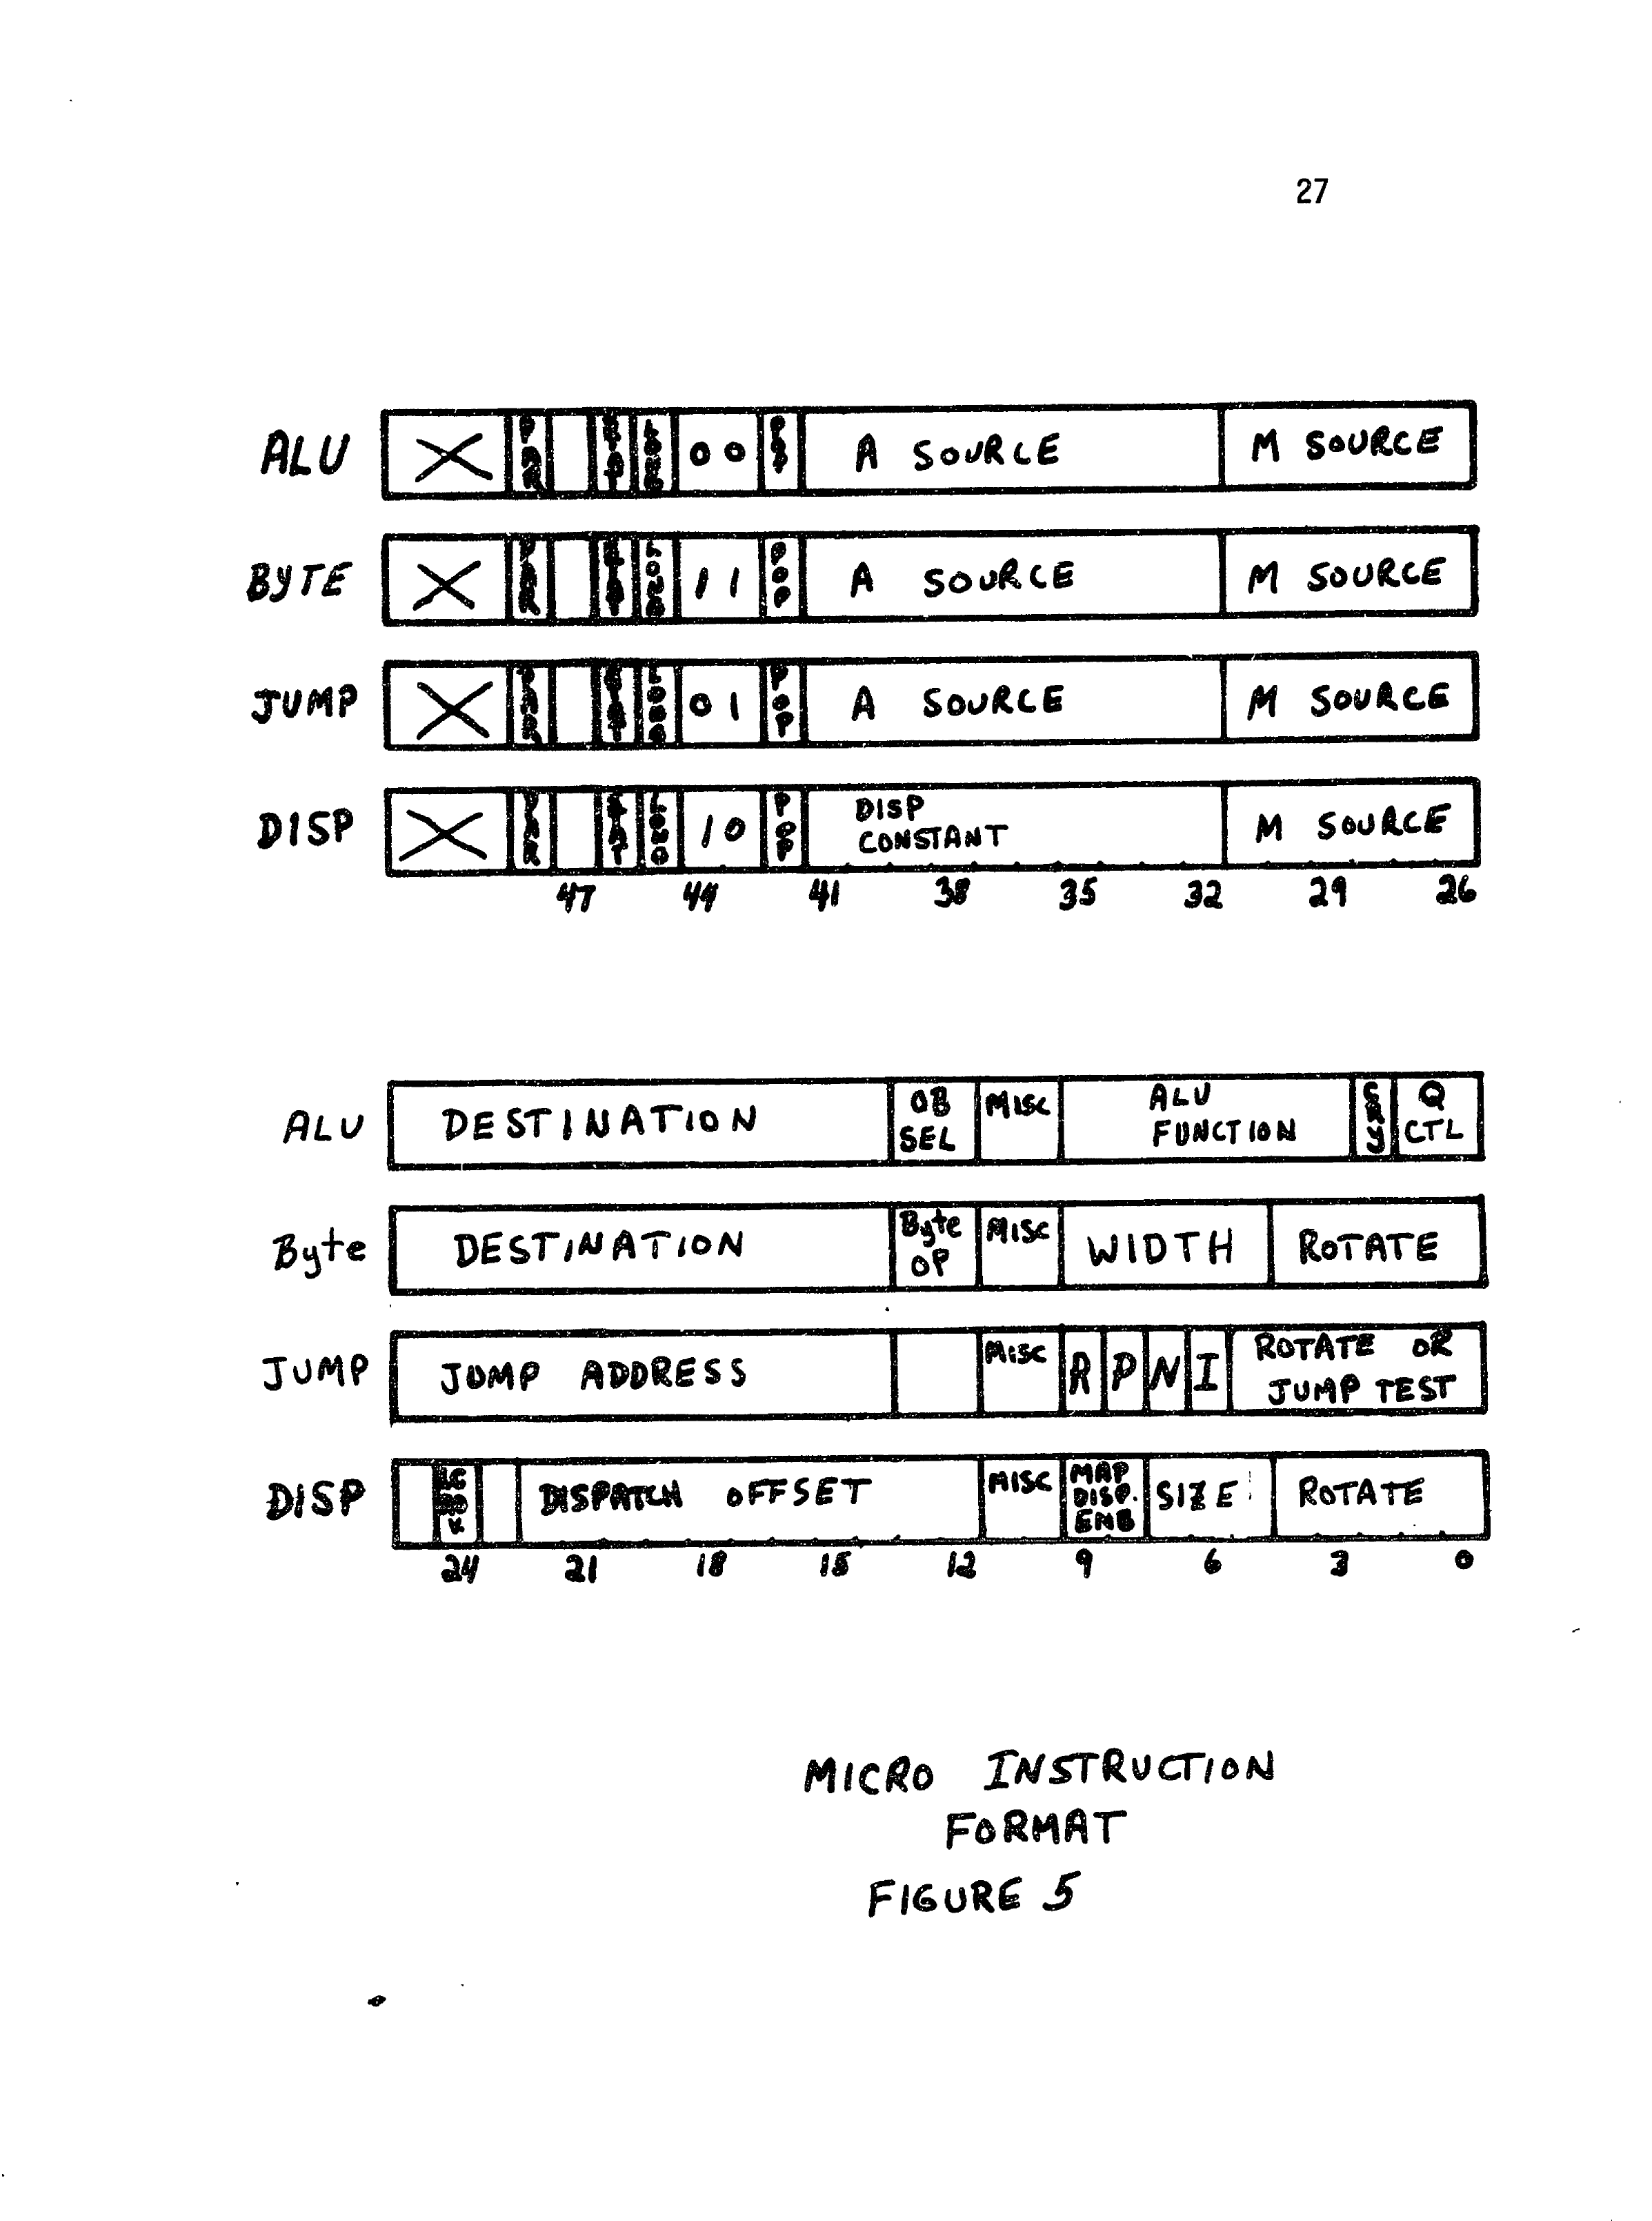 27
ALU PAR STAT LONG 00 POP A SOURCE M SOURCE
BYTE PAR STAT LONG 11 POP A SOURCE M SOURCE
JUMP PAR STAT LONG 01 POP A SOURCE M SOURCE
DISP PAR STAT LONG 10 POP DISP
CONSTANT M SOURCE
47 44 41 38 35 32 29 26
ALU DESTINATION OB
SEL MISC ALU
FUNCTION CRY Q
CTL
Byte DESTINATION Byte
OP MISC WIDTH ROTATE
JUMP JUMP ADDRESS MISC R P N I ROTATE OR
JUMP TEST
DISP DISPATCH OFFSET MISC MAP
DISP.
ENB SIZE ROTATE
24 21 18 15 12 9 6 3 0
MICRO INSTRUCTION
FORMAT
FIGURE 5